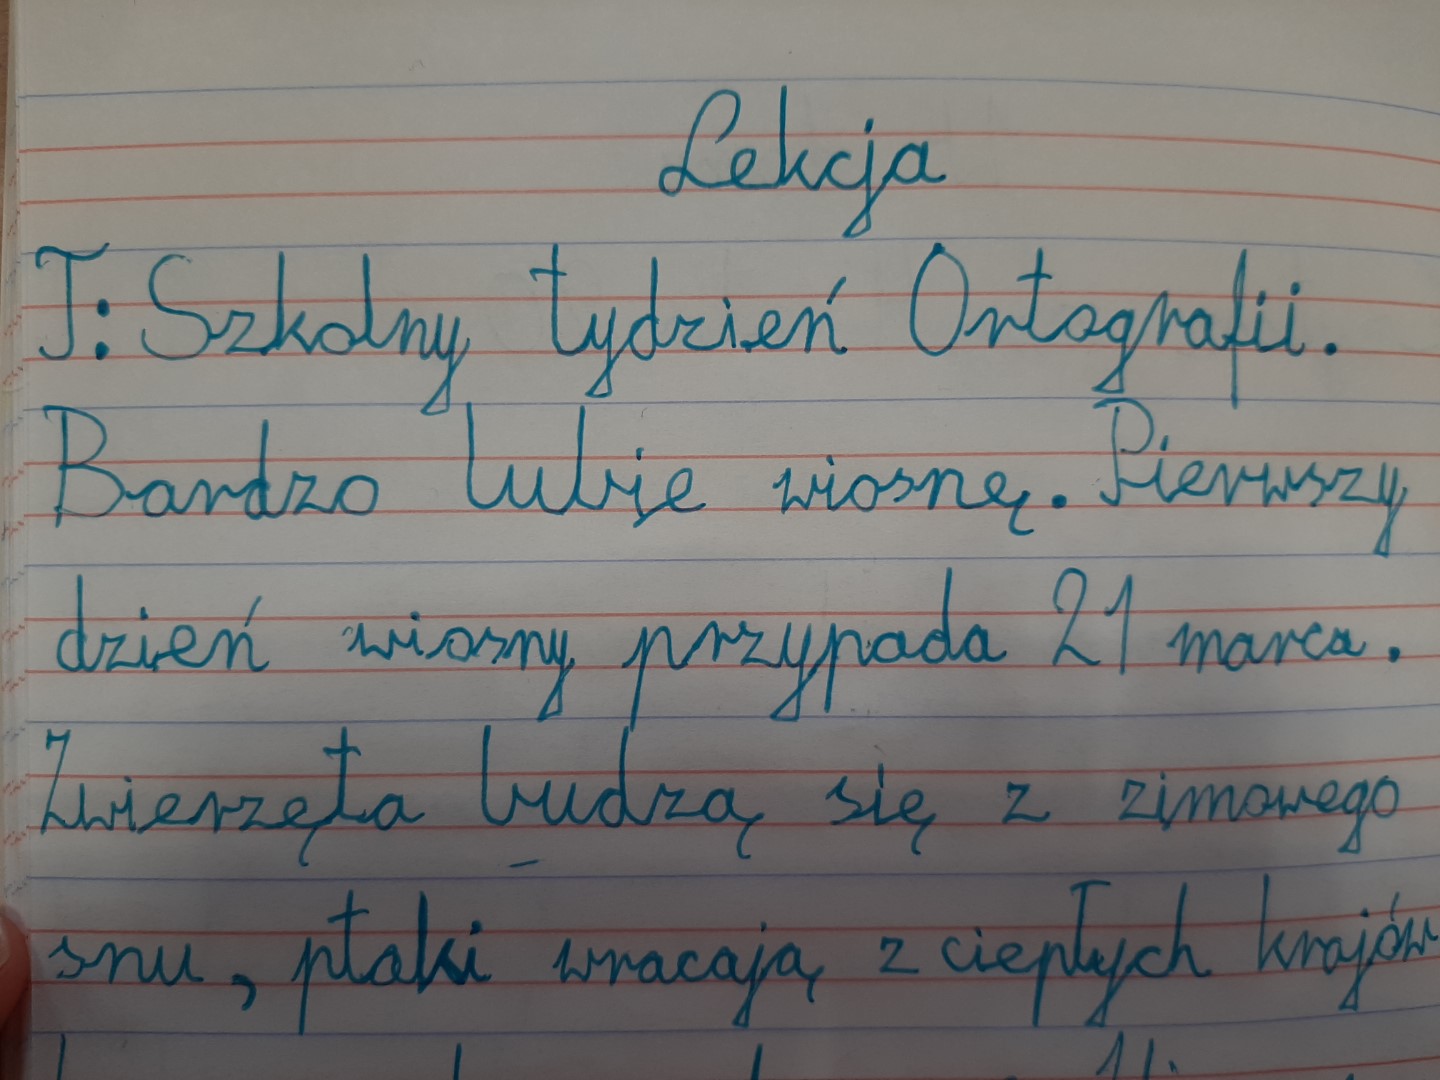 Lekcja
T: Szkolny tydzień Ortografii.
Bardzo lubię wiosnę. Pierwszy
dzień wiosny przypada 21 marca.
Zwierzęta budzą się z zimowego
snu, ptaki wracają z ciepłych krajów